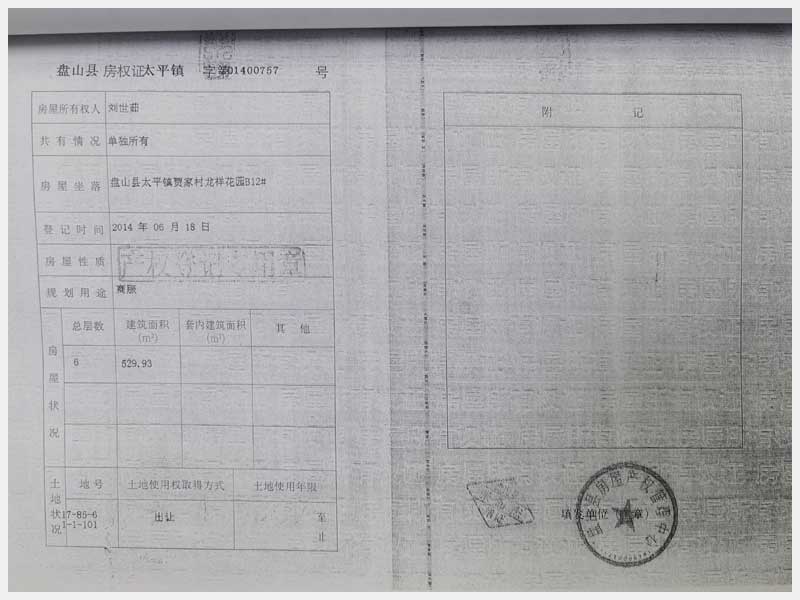 盘山县 房权证太平镇 字第01400757 号
房屋所有权人 刘世茹
共有情况 单独所有
房屋坐落 盘山县太平镇贾家村龙祥花园B12#
登记时间 2014 年 06 月 18 日
房屋性质
产权登记专用章
规划用途 商服
房屋状况
总层数 建筑面积(m²) 套内建筑面积(m²) 其他
6 529.93
土地状况
地号 土地使用权取得方式 土地使用年限
17-85-6 出让 至
1-1-101 止
附 记
填发单位（盖章）